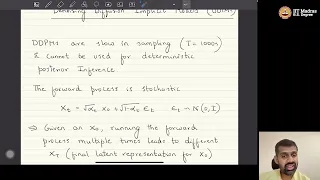 Denoising Diffusion Implicit Models (DDIMs)
DDPMs are slow in sampling (T=1000s)
& cannot be used for deterministic
posterior Inference.
The forward process is stochastic
x_t = √α_t x_0 + √1-α_t ε_t   ε_t ~ N(0,I)
⇒ Given an x_0, running the forward
process multiple times leads to different
x_T (final latent representation for x_0)
IIT Madras